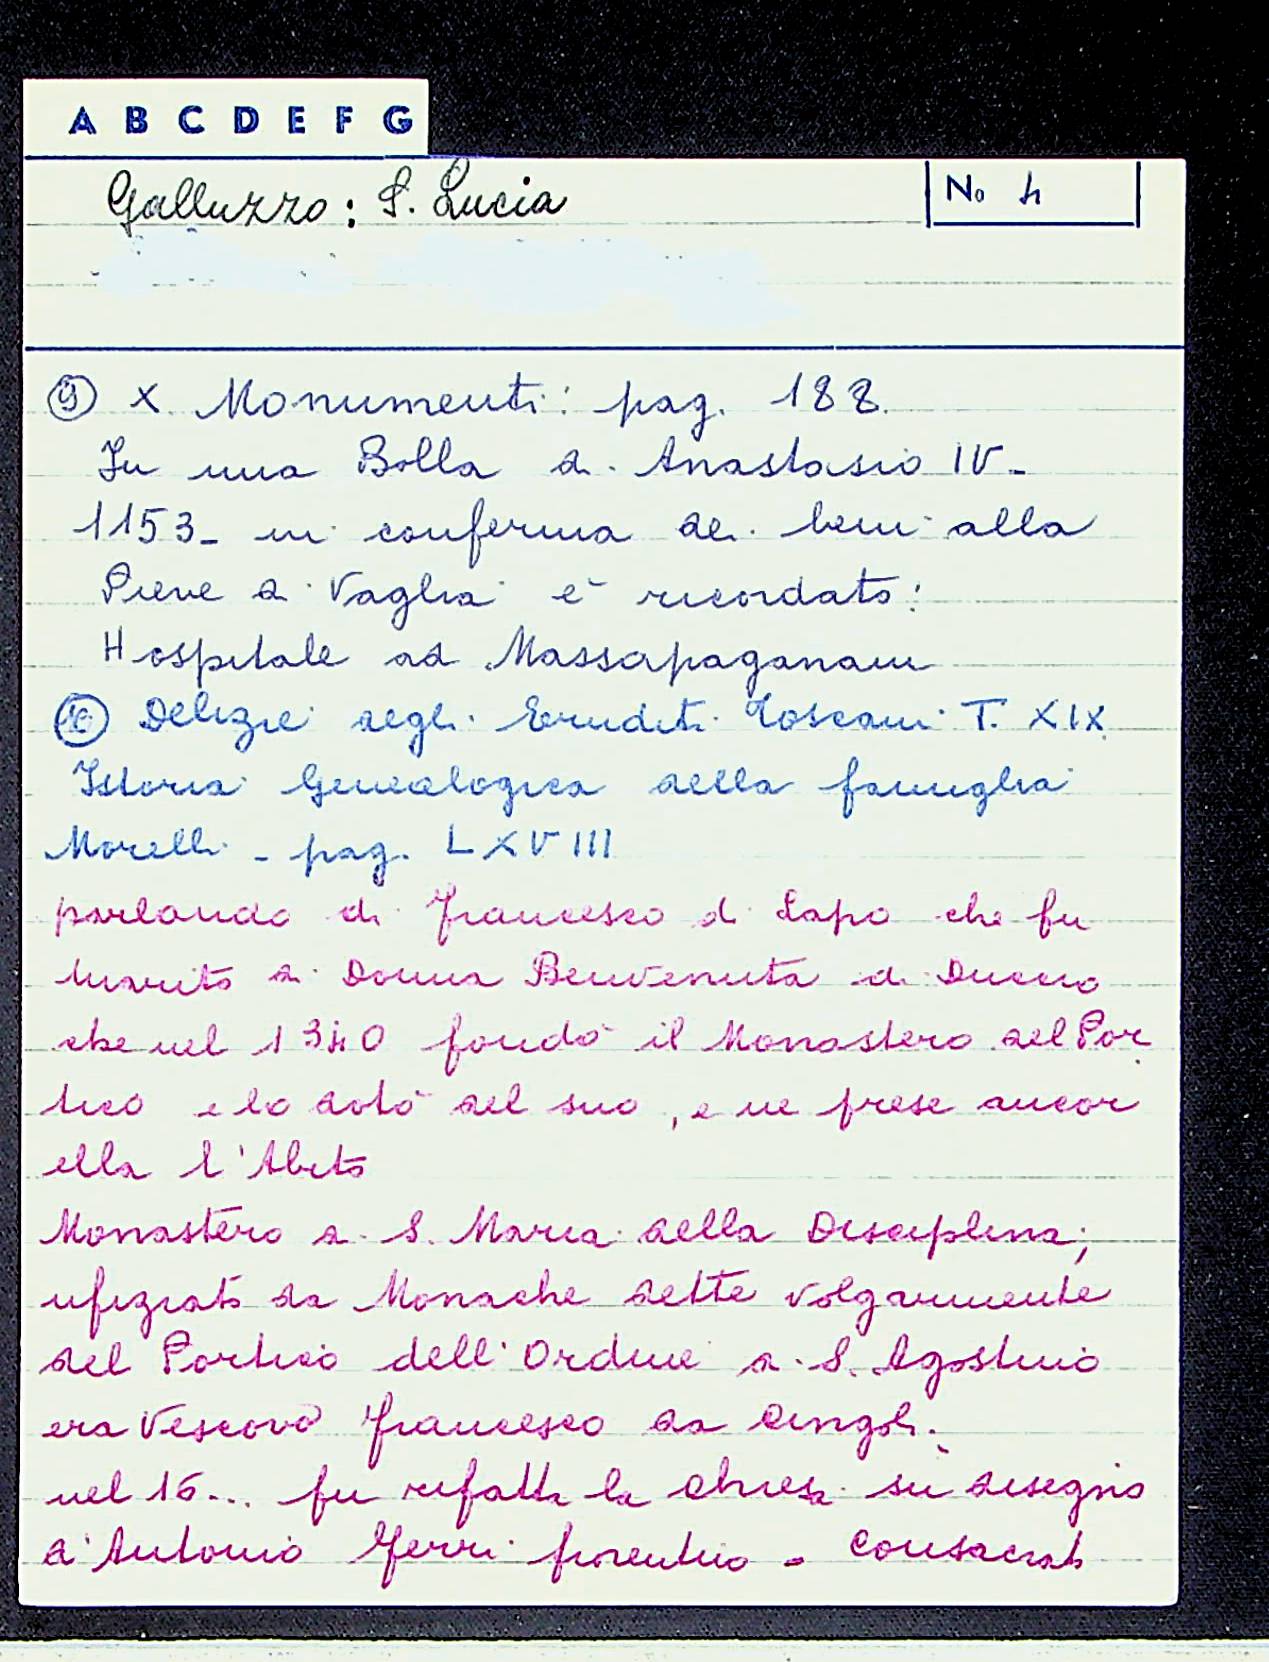 A B C D E F G
Galluzzo: S. Lucia
No 4
⑨ x Monumenti: pag. 188
In una Bolla di Anastasio IV-
1153- in conferma dei beni alla
Pieve di Vaglia è ricordato:
Hospitale ad Massapaganam
⑩ Delizie degli Eruditi Toscani T. XIX
Istoria Genealogica della famiglia
Morelli - pag. LXVIII
parlando di Francesco di Lapo che fu
marito di Donna Benvenuta di Duccio
che nel 1340 fondò il Monastero del Por
tico e lo dotò del suo, e ne prese ancor
ella l'Abito
Monastero di S. Maria della Disciplina;
ufiziato da Monache dette volgarmente
del Portico dell'Ordine di S. Agostino
era Vescovo Francesco da Cingoli.
nel 16... fu rifatta la chiesa su disegno
d'Antonio Ferri fiorentino - consacrata